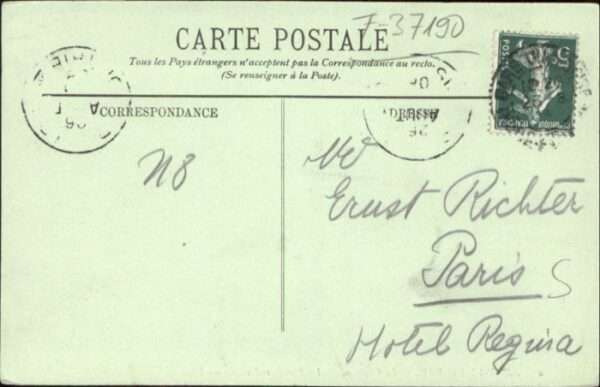 F-37190
CARTE POSTALE
Tous les Pays étrangers n'acceptent pas la Correspondance au recto.
(Se renseigner à la Poste).
CORRESPONDANCE
ADRESSE
N8
Ernst Richter
Paris
Hotel Regina